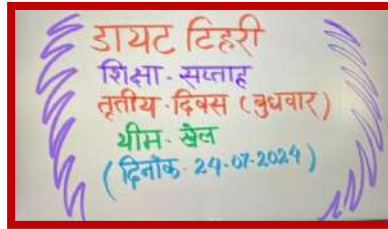 डायट टिहरी
शिक्षा - सप्ताह
तृतीय - दिवस ( बुधवार )
थीम - खेल
( दिनांक - 24-07-2024 )